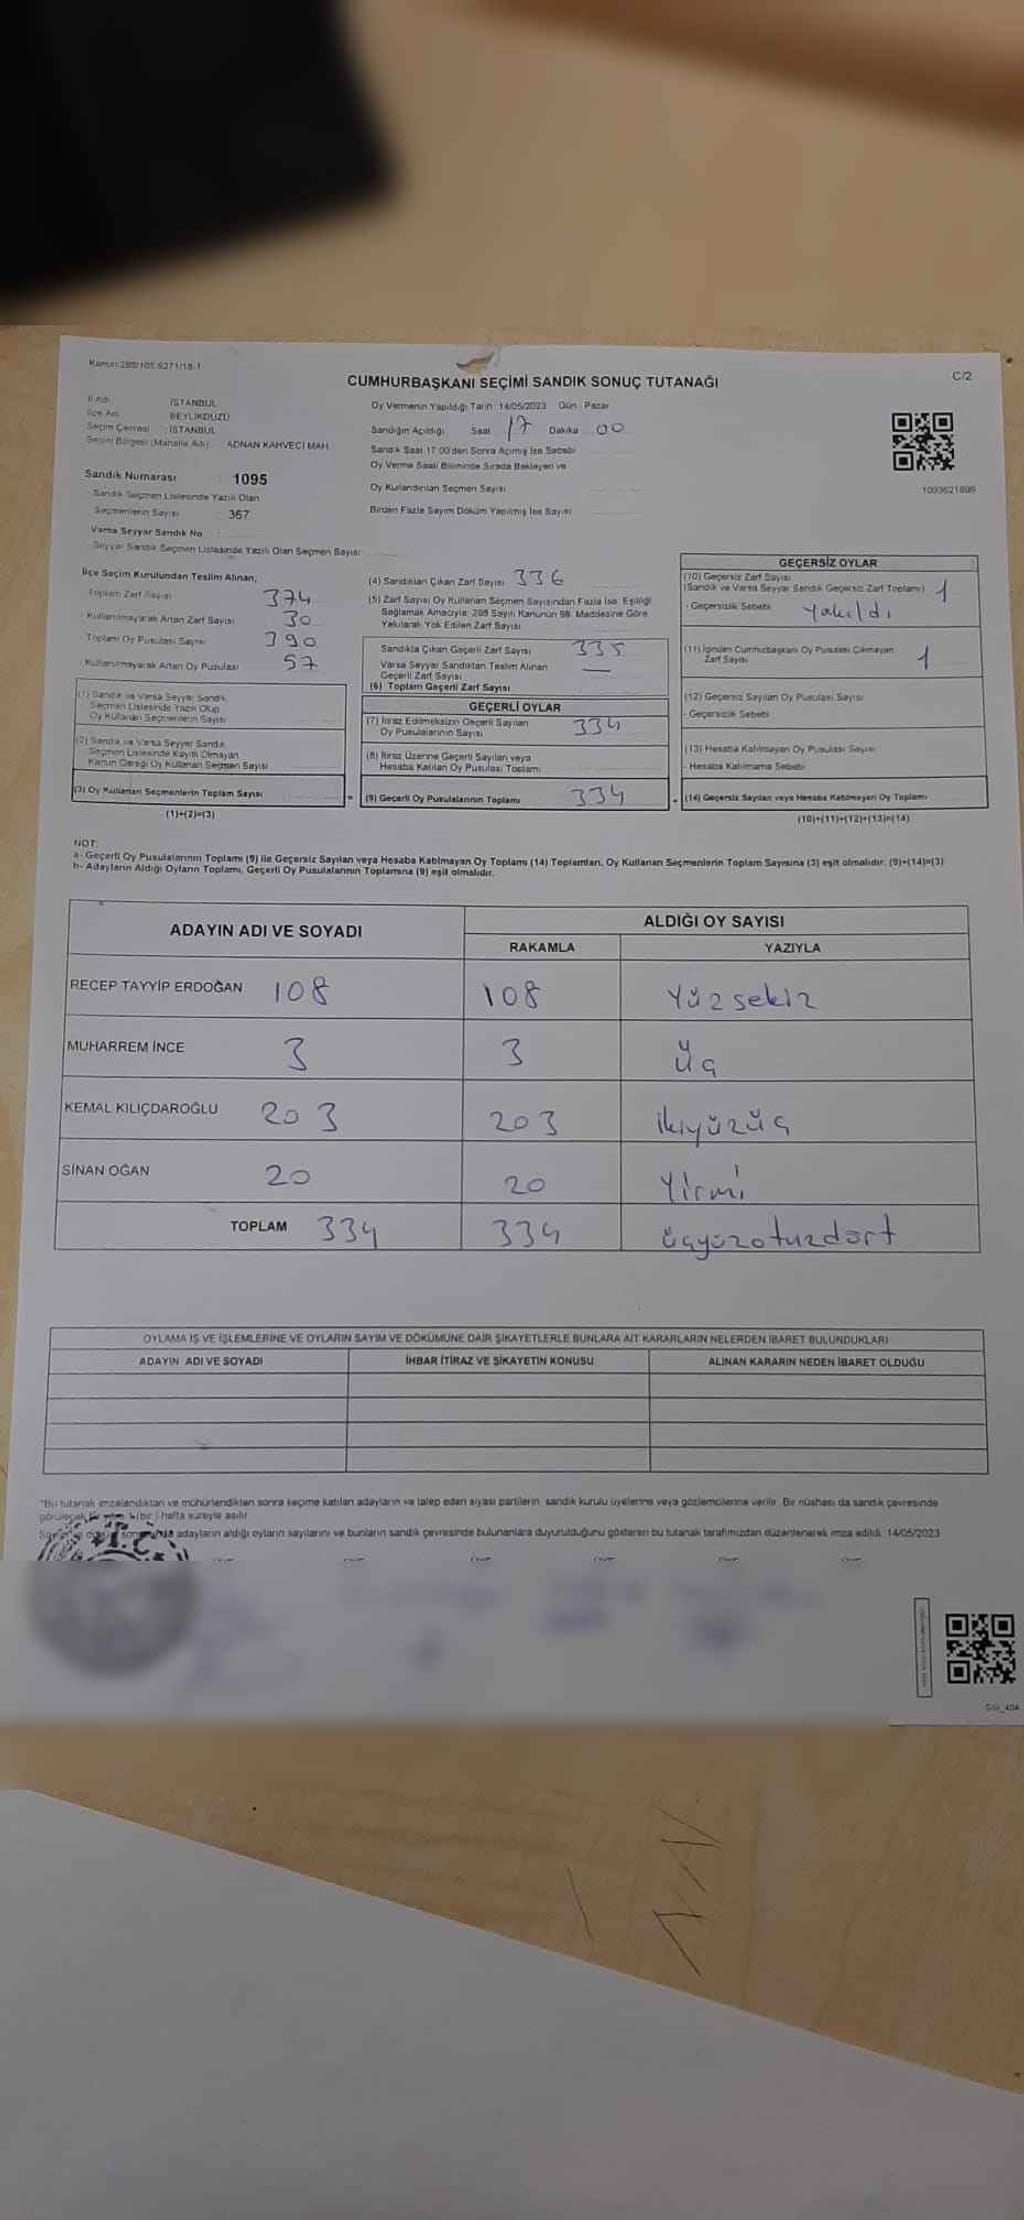 Kanun:298/105,6271/18-1
C/2
CUMHURBAŞKANI SEÇİMİ SANDIK SONUÇ TUTANAĞI
İli Adı İSTANBUL
İlçe Adı BEYLİKDÜZÜ
Seçim Çevresi : İSTANBUL
Seçim Bölgesi (Mahalle Adı) : ADNAN KAHVECİ MAH.
Sandık Numarası : 1095
Sandık Seçmen Listesinde Yazılı Olan
Seçmenlerin Sayısı : 367
Varsa Seyyar Sandık No :
Seyyar Sandık Seçmen Listesinde Yazılı Olan Seçmen Sayısı
Oy Vermenin Yapıldığı Tarih :14/05/2023 Gün : Pazar
Sandığın Açıldığı Saat 17 Dakika 00
Sandık Saat 17:00'den Sonra Açılmış İse Sebebi
Oy Verme Saati Bitiminde Sırada Bekleyen ve
Oy Kullandırılan Seçmen Sayısı
Birden Fazla Sayım Döküm Yapılmış İse Sayısı
1093621899
İlçe Seçim Kurulundan Teslim Alınan;
Toplam Zarf Sayısı 374
- Kullanılmayarak Artan Zarf Sayısı 30
Toplam Oy Pusulası Sayısı 390
- Kullanılmayarak Artan Oy Pusulası 57
(1) Sandık ve Varsa Seyyar Sandık
Seçmen Listesinde Yazılı Olup
Oy Kullanan Seçmenlerin Sayısı
(2) Sandık ve Varsa Seyyar Sandık
Seçmen Listesinde Kayıtlı Olmayan
Kanun Gereği Oy Kullanan Seçmen Sayısı
(3) Oy Kullanan Seçmenlerin Toplam Sayısı
(1)+(2)=(3)
(4) Sandıktan Çıkan Zarf Sayısı 336
(5) Zarf Sayısı Oy Kullanan Seçmen Sayısından Fazla İse; Eşitliği
Sağlamak Amacıyla; 298 Sayılı Kanunun 98. Maddesine Göre
Yakılarak Yok Edilen Zarf Sayısı
Sandıkta Çıkan Geçerli Zarf Sayısı 335
Varsa Seyyar Sandıktan Teslim Alınan
Geçerli Zarf Sayısı —
(6) Toplam Geçerli Zarf Sayısı
GEÇERLİ OYLAR
(7) İtiraz Edilmeksizin Geçerli Sayılan
Oy Pusulalarının Sayısı 334
(8) İtiraz Üzerine Geçerli Sayılan veya
Hesaba Katılan Oy Pusulası Toplamı
= (9) Geçerli Oy Pusulalarının Toplamı 334
GEÇERSİZ OYLAR
(10) Geçersiz Zarf Sayısı
(Sandık ve Varsa Seyyar Sandık Geçersiz Zarf Toplamı) 1
- Geçersizlik Sebebi yakıldı
(11) İçinden Cumhurbaşkanı Oy Pusulası Çıkmayan
Zarf Sayısı 1
(12) Geçersiz Sayılan Oy Pusulası Sayısı
- Geçersizlik Sebebi
(13) Hesaba Katılmayan Oy Pusulası Sayısı
- Hesaba Katılmama Sebebi
+ (14) Geçersiz Sayılan veya Hesaba Katılmayan Oy Toplamı
(10)+(11)+(12)+(13)=(14)
NOT:
a- Geçerli Oy Pusulalarının Toplamı (9) ile Geçersiz Sayılan veya Hesaba Katılmayan Oy Toplamı (14) Toplamları, Oy Kullanan Seçmenlerin Toplam Sayısına (3) eşit olmalıdır. (9)+(14)=(3)
b- Adayların Aldığı Oyların Toplamı, Geçerli Oy Pusulalarının Toplamına (9) eşit olmalıdır.
ADAYIN ADI VE SOYADI
ALDIĞI OY SAYISI
RAKAMLA YAZIYLA
RECEP TAYYİP ERDOĞAN 108 108 Yüzsekiz
MUHARREM İNCE 3 3 Üç
KEMAL KILIÇDAROĞLU 203 203 ikiyüzüç
SİNAN OĞAN 20 20 Yirmi
TOPLAM 334 334 üçyüzotuzdört
OYLAMA İŞ VE İŞLEMLERİNE VE OYLARIN SAYIM VE DÖKÜMÜNE DAİR ŞİKAYETLERLE BUNLARA AİT KARARLARIN NELERDEN İBARET BULUNDUKLARI
ADAYIN ADI VE SOYADI İHBAR İTİRAZ VE ŞİKAYETİN KONUSU ALINAN KARARIN NEDEN İBARET OLDUĞU
*Bu tutanak imzalandıktan ve mühürlendikten sonra seçime katılan adayların ve talep eden siyasi partilerin, sandık kurulu üyelerine veya gözlemcilerine verilir. Bir nüshası da sandık çevresinde
görülecek bir yere 1(bir) hafta süreyle asılır.
adayların aldığı oyların sayılarını ve bunların sandık çevresinde bulunanlara duyurulduğunu gösteren bu tutanak tarafımızdan düzenlenerek imza edildi. 14/05/2023
T.C.